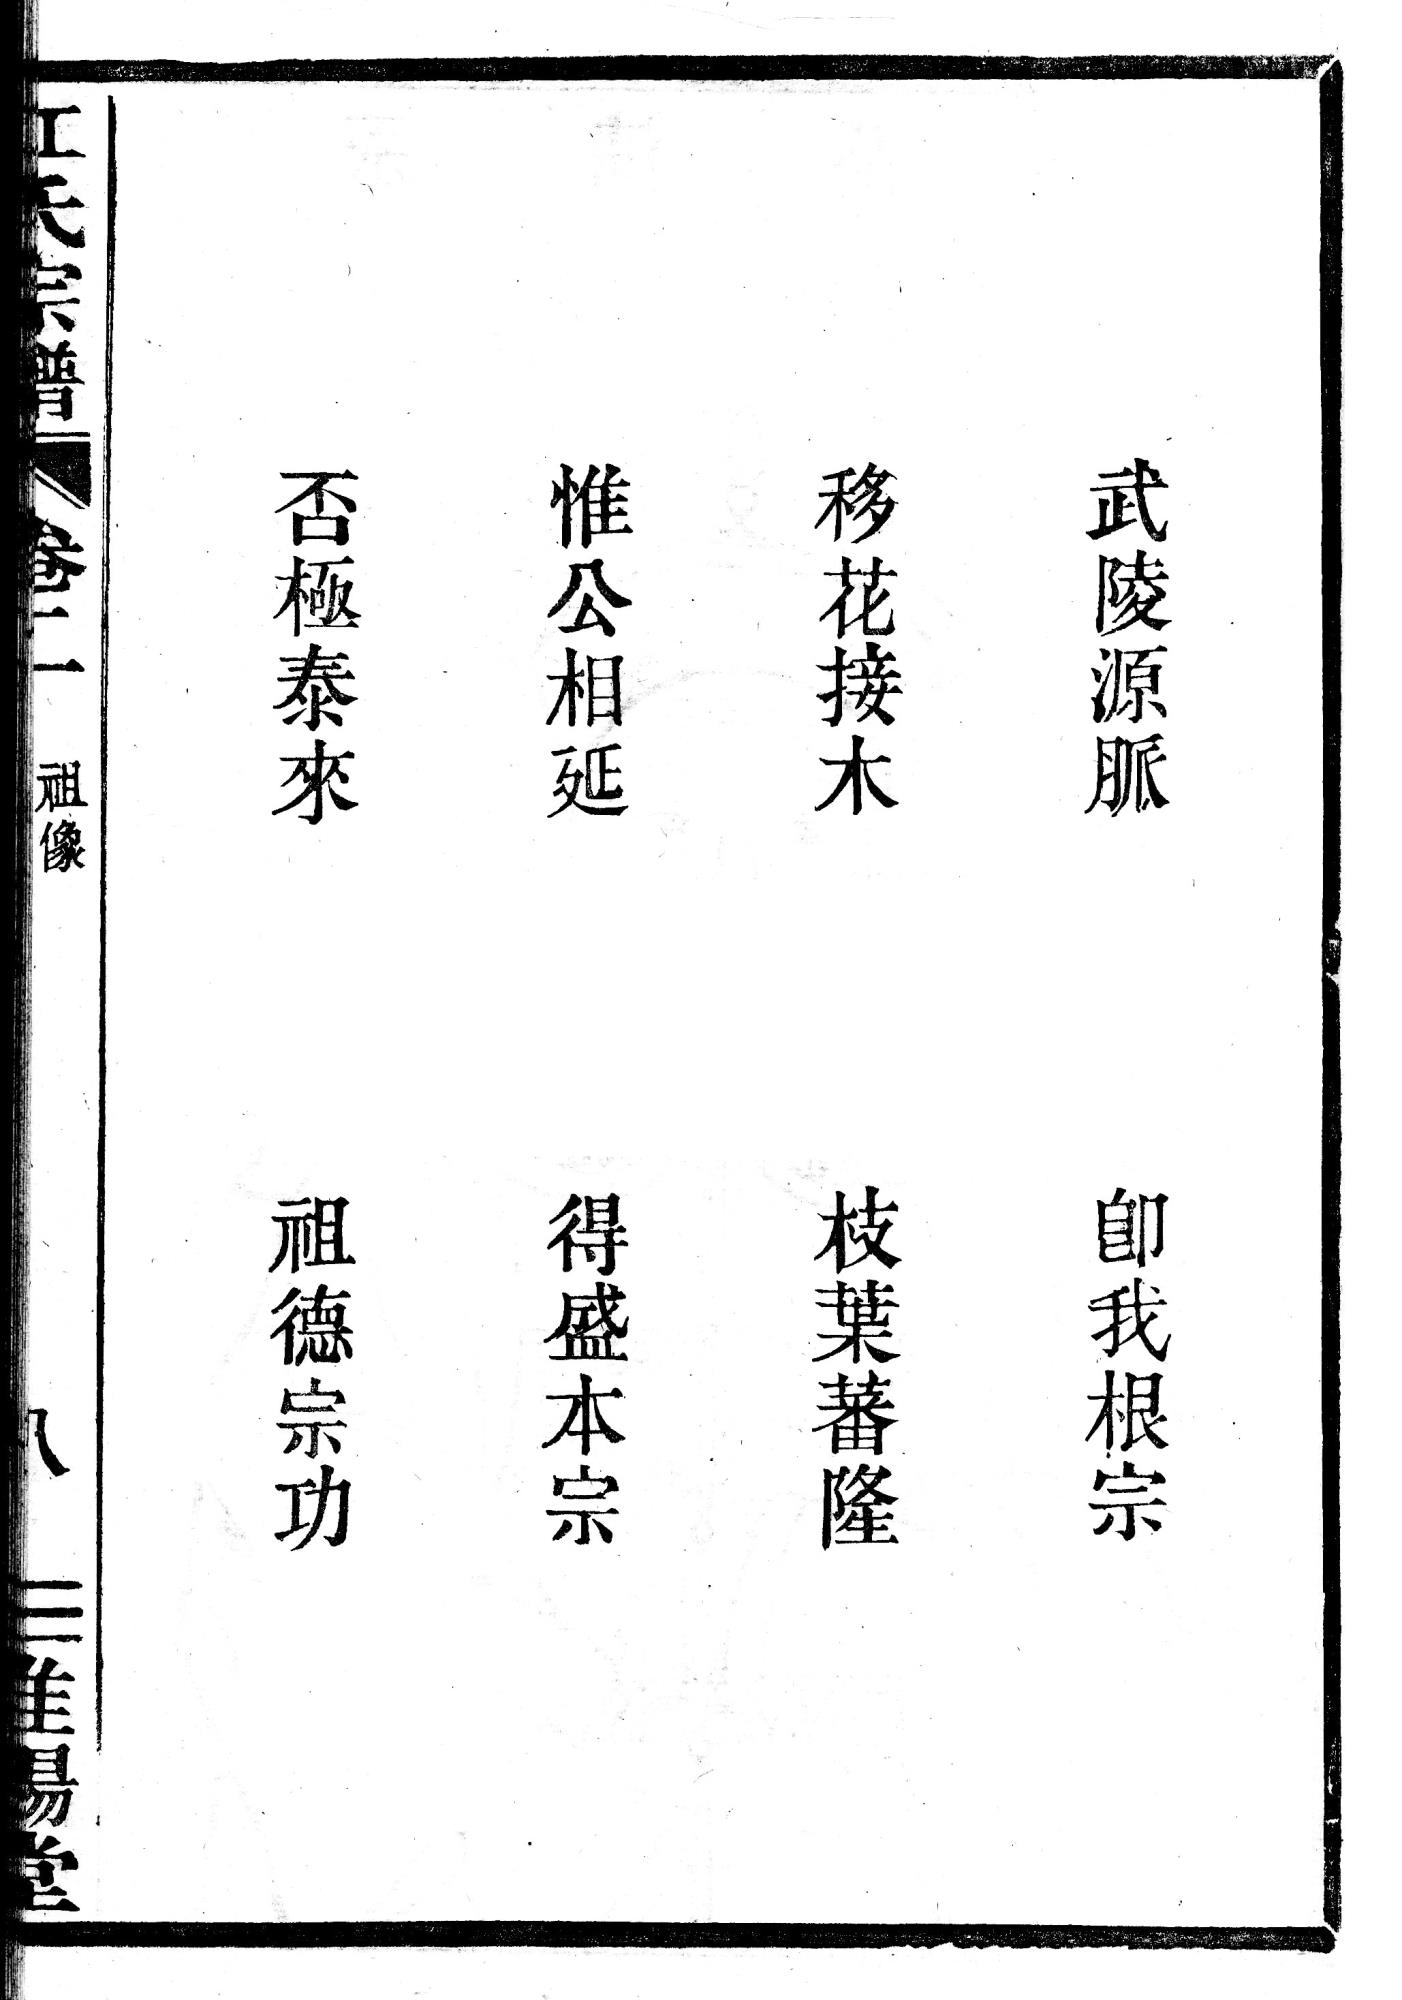 武陵源脈 卽我根宗
移花接木 枝葉蕃隆
惟公相延 得盛本宗
否極泰來 祖德宗功
氏宗譜 卷二 祖像 八 三惟堂